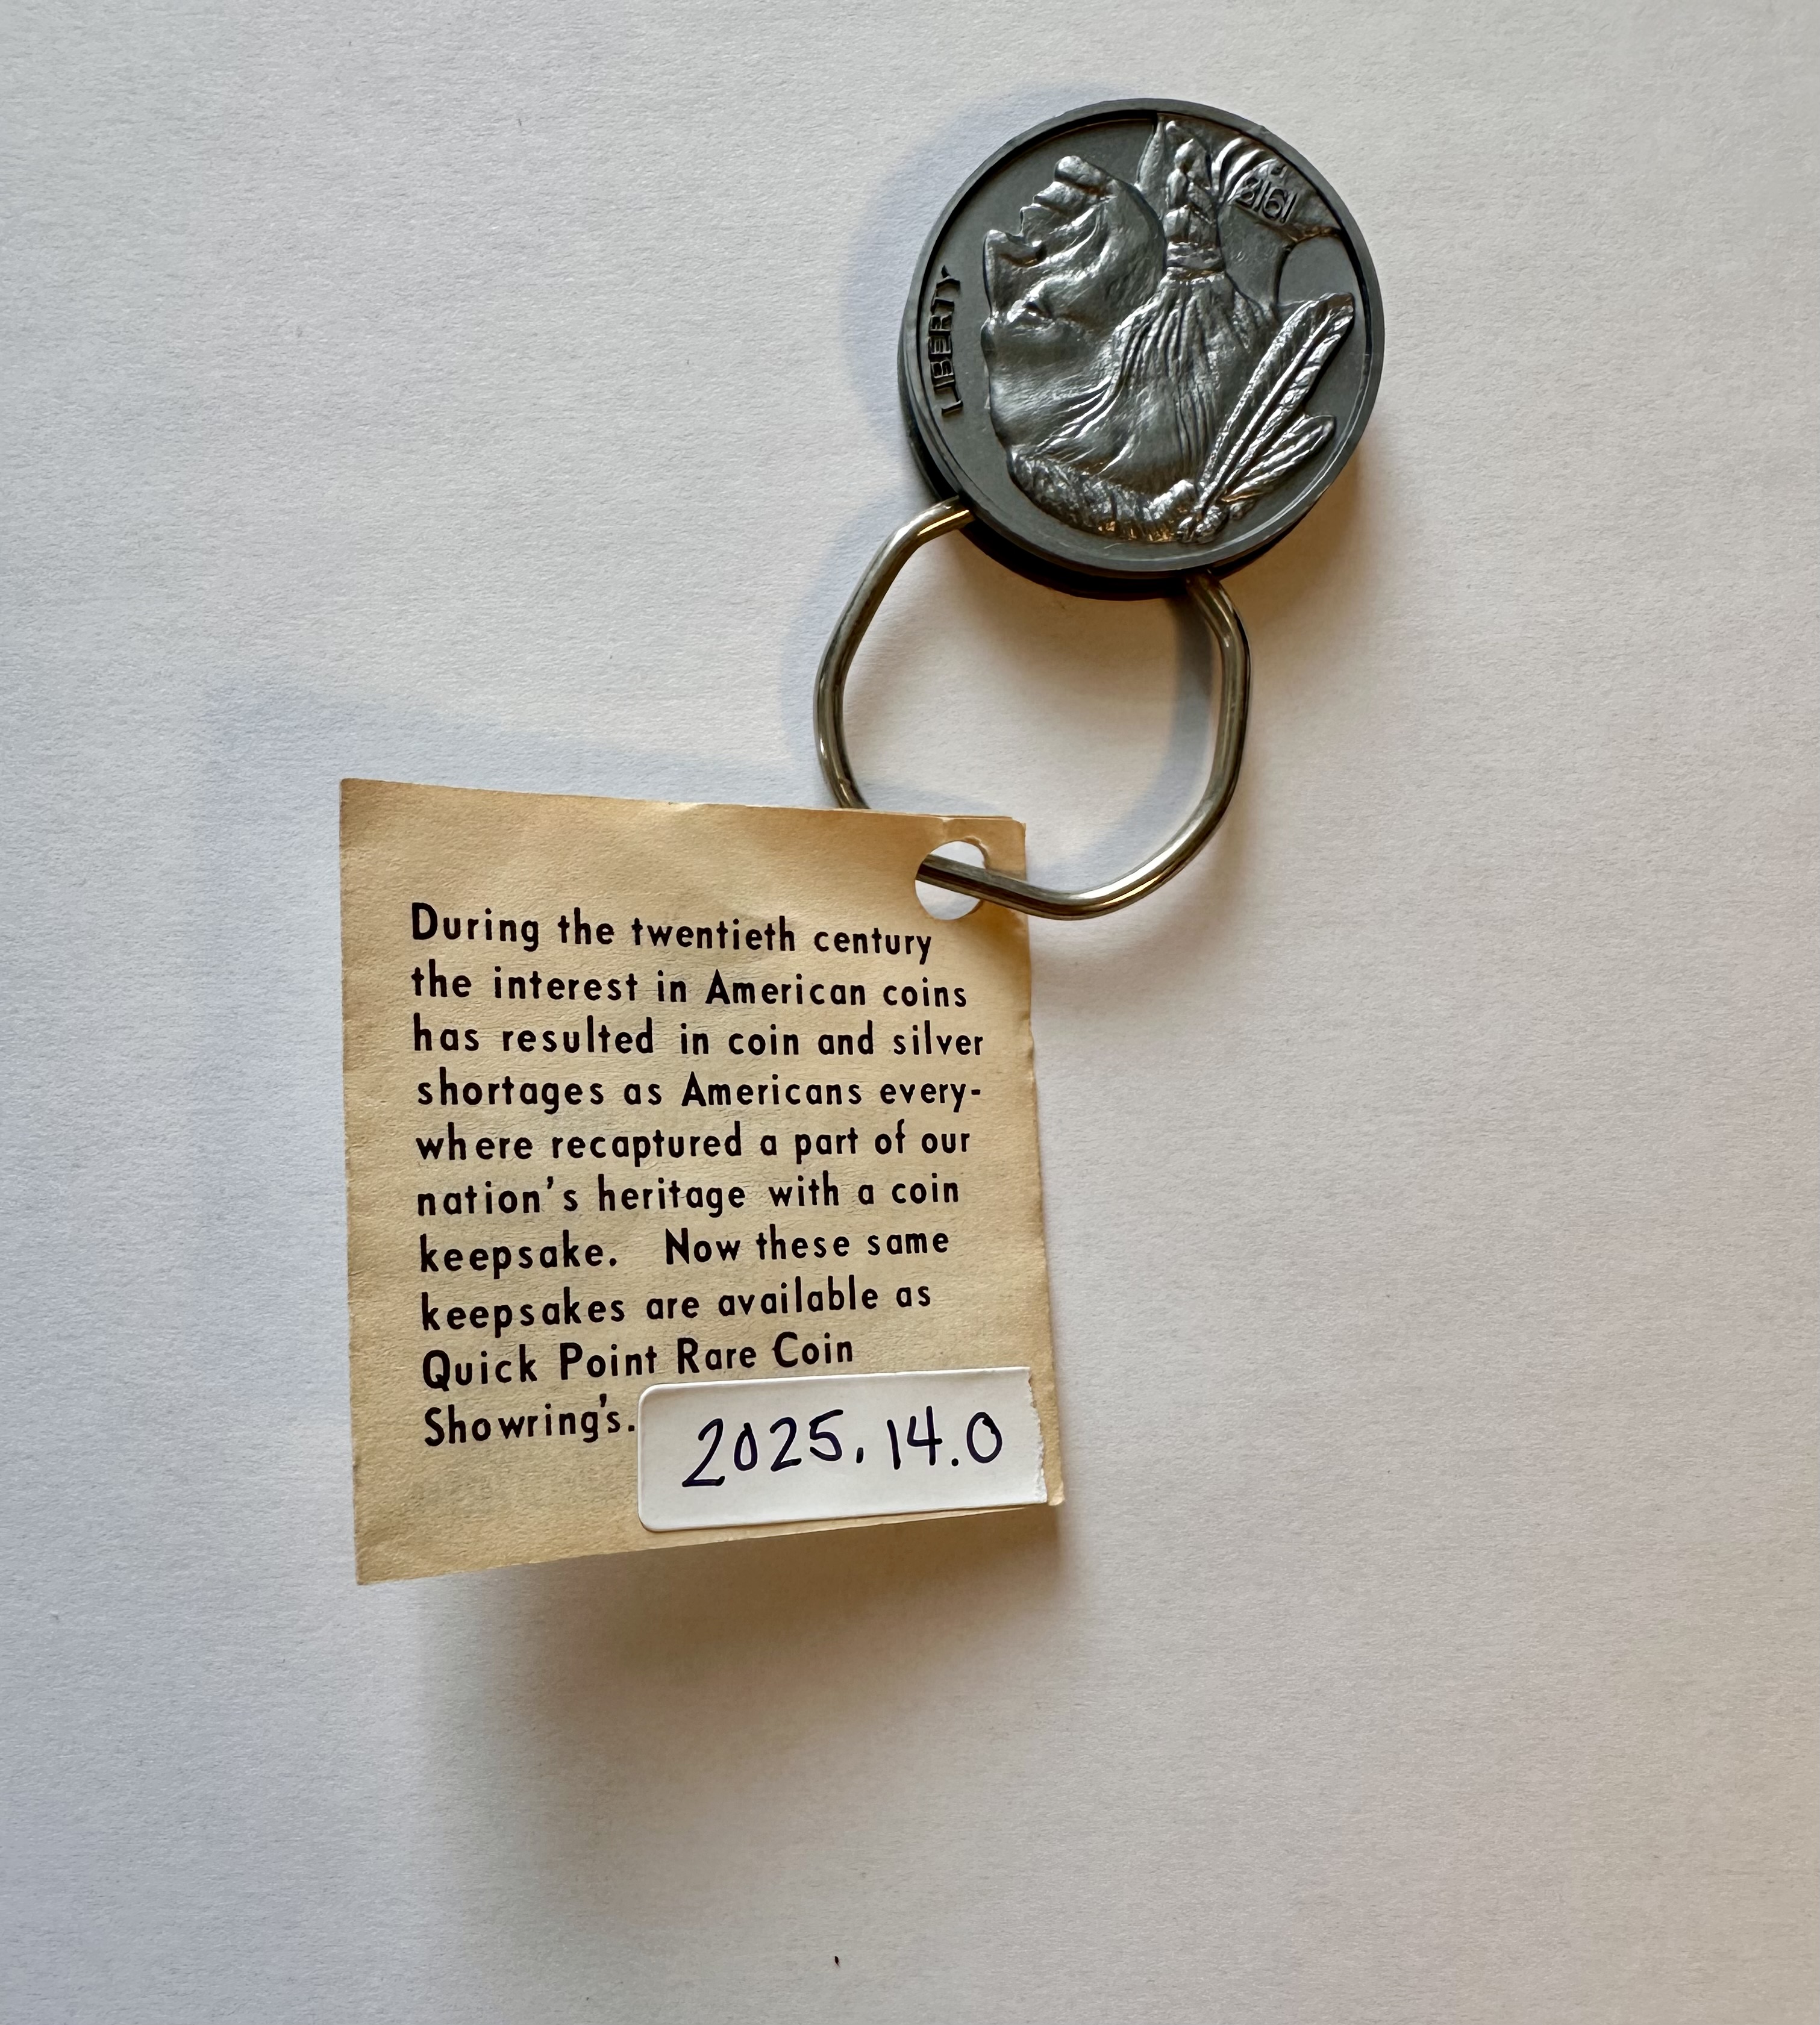 LIBERTY
1918
During the twentieth century
the interest in American coins
has resulted in coin and silver
shortages as Americans every-
where recaptured a part of our
nation's heritage with a coin
keepsake. Now these same
keepsakes are available as
Quick Point Rare Coin
Showring's.
2025.14.0